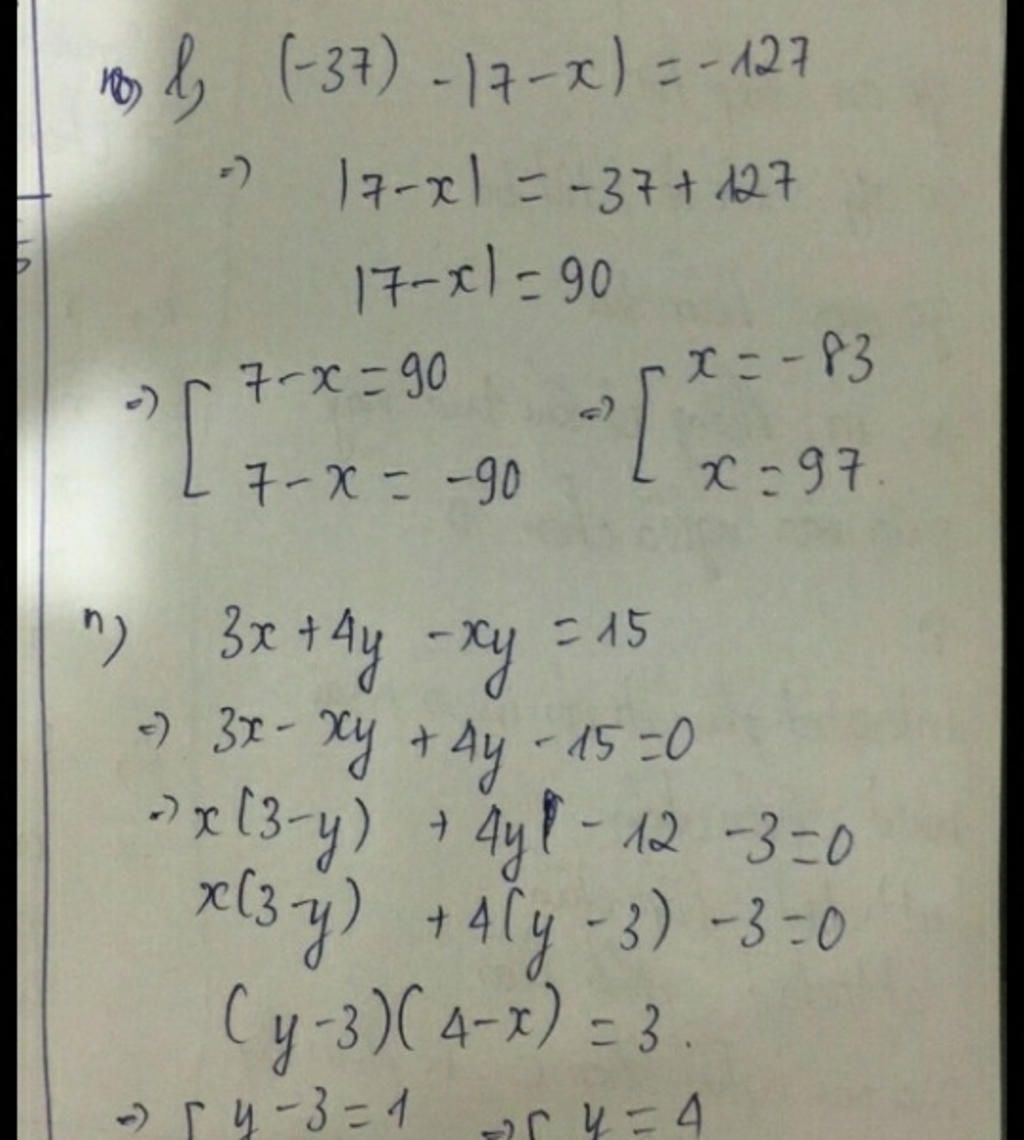 l, (-37) - |7 - x| = -127
=> |7 - x| = -37 + 127
|7 - x| = 90
=> [ 7 - x = 90 => [ x = -83
7 - x = -90 x = 97.
n) 3x + 4y - xy = 15
=> 3x - xy + 4y - 15 = 0
=> x(3 - y) + 4y - 12 - 3 = 0
x(3 - y) + 4(y - 3) - 3 = 0
(y - 3)(4 - x) = 3.
=> [ y - 3 = 1 => [ y = 4